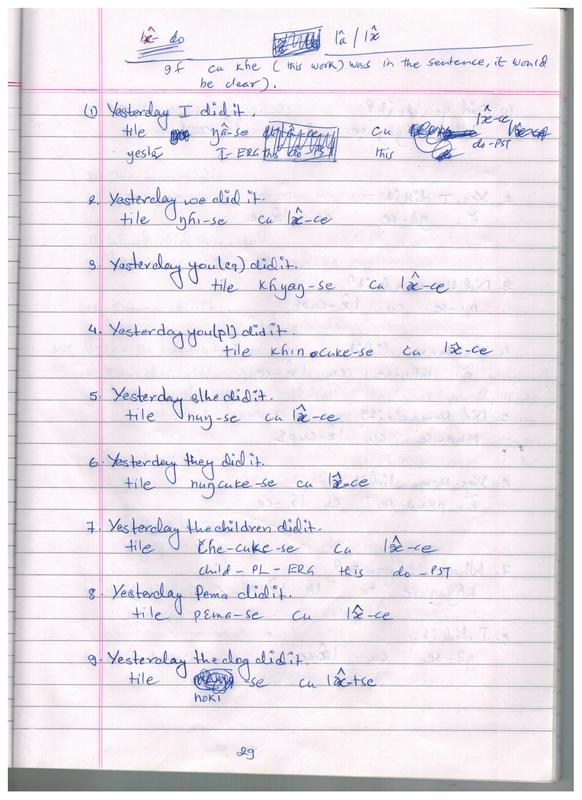 læ̂ do lâ / læ̂
If cu khe (this work) was in the sentence, it would
be clear).
(1) Yesterday I did it.
tile ŋâ-se cu læ̂-ce
yester I-ERG this do-PST
2. Yesterday we did it.
tile ŋhi-se cu læ̂-ce
3. Yesterday you(sg) did it.
tile khyaŋ-se cu læ̂-ce
4. Yesterday you(pl) did it.
tile khin cuke-se cu læ̂-ce
5. Yesterday s/he did it.
tile nuŋ-se cu læ̂-ce
6. Yesterday they did it.
tile nuŋcuke-se cu læ̂-ce
7. Yesterday the children did it.
tile che-cuke-se cu læ̂-ce
child - PL - ERG this do - PST
8. Yesterday Pema did it.
tile pema-se cu læ̂-ce
9. Yesterday the dog did it.
tile noki -se cu læ̂-tse
29